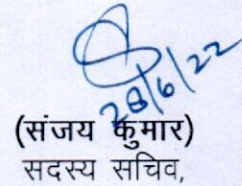 28/6/22
(संजय कुमार)
सदस्य सचिव,